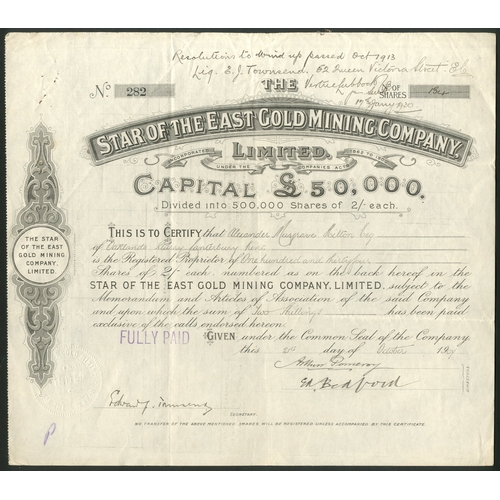 Resolutions to wind up passed Oct 1913
Liq. E. J. Townsend. 62 Queen Victoria Street. E.C.
THE
No. 282
No OF SHARES 134
STAR OF THE EAST GOLD MINING COMPANY,
LIMITED.
INCORPORATED UNDER THE COMPANIES ACTS
CAPITAL £50,000.
Divided into 500,000 Shares of 2/- each.
THIS IS TO CERTIFY that Alexander Musgrave
of Canterbury Kent
is the Registered Proprietor of One hundred and thirty four
Shares of 2/- each, numbered as on the back hereof in the
STAR OF THE EAST GOLD MINING COMPANY, LIMITED, subject to the
Memorandum and Articles of Association of the said Company
and upon which the sum of Two Shillings has been paid
exclusive of the calls endorsed hereon.
FULLY PAID
GIVEN under the Common Seal of the Company
this day of October 19
Arthur Pomeroy
Bedford
DIRECTORS
Edward J. Townsend
SECRETARY.
NO TRANSFER OF THE ABOVE MENTIONED SHARES WILL BE REGISTERED UNLESS ACCOMPANIED BY THIS CERTIFICATE.
THE STAR
OF THE EAST
GOLD MINING
COMPANY,
LIMITED.
P